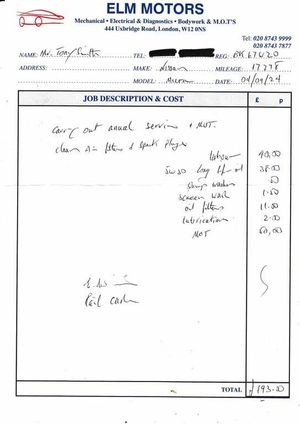 ELM MOTORS
Mechanical • Electrical & Diagnostics • Bodywork & M.O.T'S
444 Uxbridge Road, London, W12 0NS
Tel: 020 8743 9999
020 8743 7877
NAME: Mr. Tony TEL: REG:
ADDRESS: MAKE: Nissan MILEAGE: 17778
MODEL: Micra DATE: 04/09/24
JOB DESCRIPTION & COST £ p
Carry out anual service + MOT.
clean Air filter & Spark Plugs
labour 90.00
5W30 long life oil 38.00
Sump washer .50
screen wash 1.50
oil filter 11.00
lubrication 2.00
MOT 50.00
Paid Cash
TOTAL £193.00